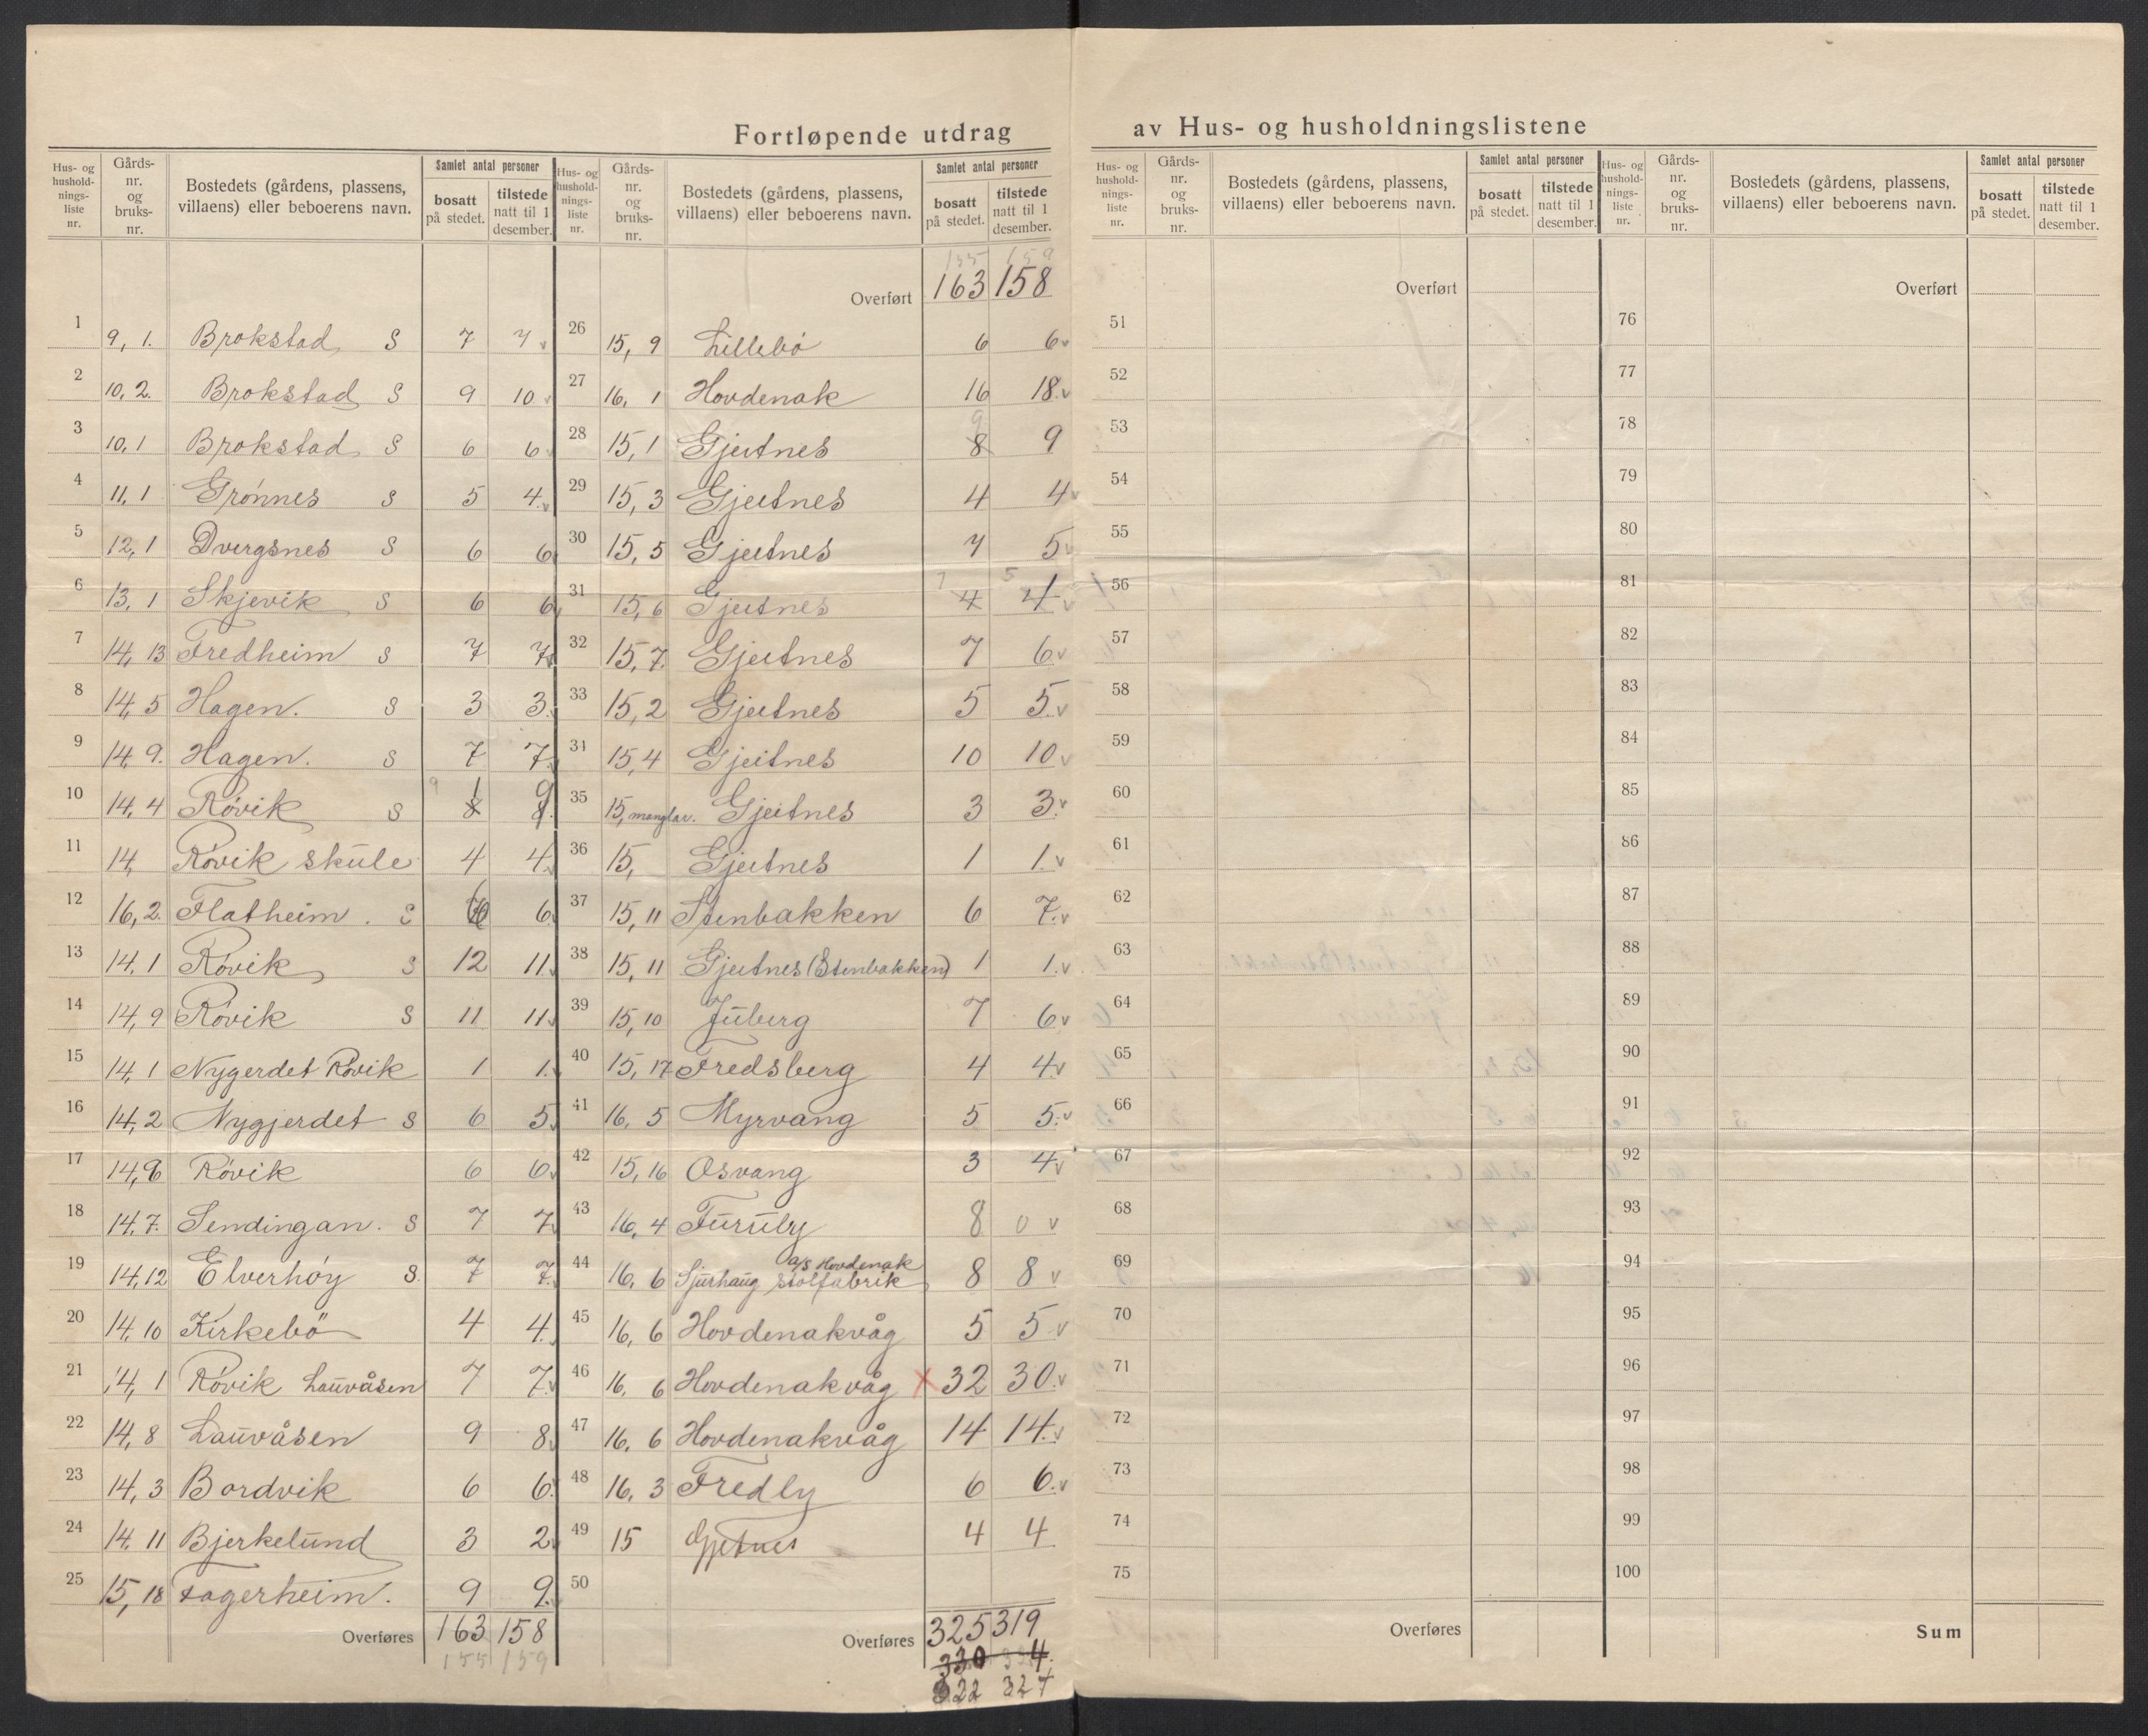 Fortløpende utdrag av Hus- og husholdningslistene
Hus- og hushold-nings-liste nr. Gårds-nr. og bruks-nr. Bostedets (gårdens, plassens, villaens) eller beboerens navn. Samlet antal personer bosatt på stedet. tilstede natt til 1 desember.
1 9, 1. Brokstad S 7 7 v
2 10, 2. Brokstad S 9 10 v
3 10, 1 Brokstad S 6 6 v
4 11, 1 Grønnes S 5 4 v
5 12, 1 Dvergsnes S 6 6
6 13, 1 Skjevik S 6 6 v
7 14, 13 Fredheim S 7 7 v
8 14, 5 Hagen. S 3 3.
9 14, 9. Hagen. S 7 7
10 14, 4 Røvik S 9
11 14, Røvik skule 4 4
12 16, 2. Flatheim. 6 6
13 14, 1 Røvik S 12 11
14 14, 9 Røvik S 11 11
15 14, 1 Nygerdet Røvik 1 1.
16 14, 2 Nygjerdet S 6 5
17 14, 6 Røvik 6 6
18 14, 7. Sendingan. S 7 7
19 14, 12 Elverhøy S. 7 7
20 14, 10 Kirkebö 4 4
21 14, 1 Røvik Lauvåsen 7 7
22 14, 8 Lauvåsen 9 8
23 14, 3 Bordvik 6 6
24 14, 11 Bjerkelund 3 2
25 15, 18 Fagerheim. 9 9.
Overføres 163 158
155 159
Hus- og hushold-nings-liste nr. Gårds-nr. og bruks-nr. Bostedets (gårdens, plassens, villaens) eller beboerens navn. Samlet antal personer bosatt på stedet. tilstede natt til 1 desember.
155 159
Overført 163 158
26 15, 9 Lillebö 6 6 v
27 16, 1 Hovdenak 16 18 v
28 15, 1 Gjeitnes 9 8 9
29 15, 3 Gjeitnes 4 4 v
30 15, 5 Gjeitnes 7 5 v
31 15, 6 Gjeitnes 4 4 v
32 15, 7. Gjeitnes 7 6 v
33 15, 2 Gjeitnes 5 5 v
34 15, 4 Gjeitnes 10 10 v
35 15, manglar. Gjeitnes 3 3 v
36 15, Gjeitnes 1 1 v
37 15, 11 Stenbakken 6 7 v
38 15, 11 Gjeitnes (Stenbakken) 1 1. v
39 15, 10 Juberg 7 6 v
40 15, 17 Fredsberg 4 4 v
41 16, 5 Myrvang 5 5 v
42 15, 16 Osvang 3 4 v
43 16, 4 Furuly 8 0 v
44 16, 6 Sjurhaug a/s Hovdenak stolfabrik 8 8 v
45 16, 6 Hovdenakvåg 5 5 v
46 16, 6 Hovdenakvåg x 32 30 v
47 16, 6 Hovdenakvåg 14 14 v
48 16, 3 Fredly 6 6. v
49 15 Gjetnes 4 4
50
Overføres 325 319
322 327
Hus- og hushold-nings-liste nr. Gårds-nr. og bruks-nr. Bostedets (gårdens, plassens, villaens) eller beboerens navn. Samlet antal personer bosatt på stedet. tilstede natt til 1 desember.
Overført
51
52
53
54
55
56
57
58
59
60
61
62
63
64
65
66
67
68
69
70
71
72
73
74
75
Overføres
Hus- og hushold-nings-liste nr. Gårds-nr. og bruks-nr. Bostedets (gårdens, plassens, villaens) eller beboerens navn. Samlet antal personer bosatt på stedet. tilstede natt til 1 desember.
Overført
76
77
78
79
80
81
82
83
84
85
86
87
88
89
90
91
92
93
94
95
96
97
98
99
100
Sum